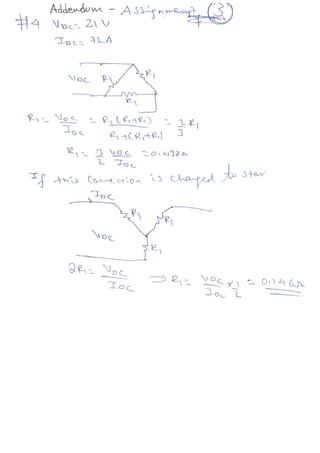 Addendum - Assignment 3
#4 VDC = 21V
IDC = 72A
VDC R1 R1
R1
R1 = VDC/IDC = R1(R1+R1)/R1+(R1+R1) = 2/3 R1
R1 = 3/2 VDC/IDC = 0.438Ω
If this connection is changed to star
IDC
R1 R1
VDC
R1
2R1 = VDC/IDC ⇒ R1 = VDC/IDC × 1/2 = 0.146Ω